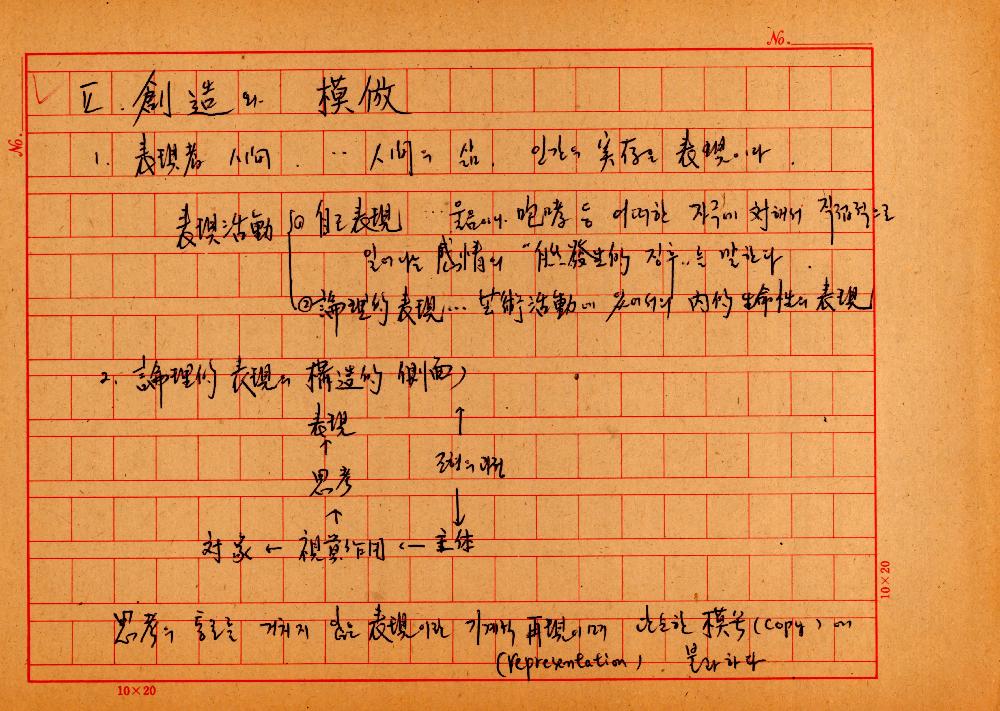 No.
No.
Ⅱ. 創造와 模倣
1. 表現者 人間 ‥ 人間의 삶, 인간의 実存은 表現이다.
表現活動 ① 自己表現 ‥ 울음에서 咆哮 등 어떠한 자극에 対해서 직접적으로
일어나는 感情의 "自然發生的 징후"를 말한다.
② 論理的 表現 … 芸術活動에 있어서의 內的 生命性의 表現
2. 論理的 表現의 構造的 側面)
表現 ↑
↑ 표현의 과정
思考
↑ ↓
対象 ← 視覚作用 ← 主体
思考의 통로를 거치지 않은 表現이란 기계적 再現이며 단순한 模写(copy)에
(representation) 불과하다
10×20
10×20